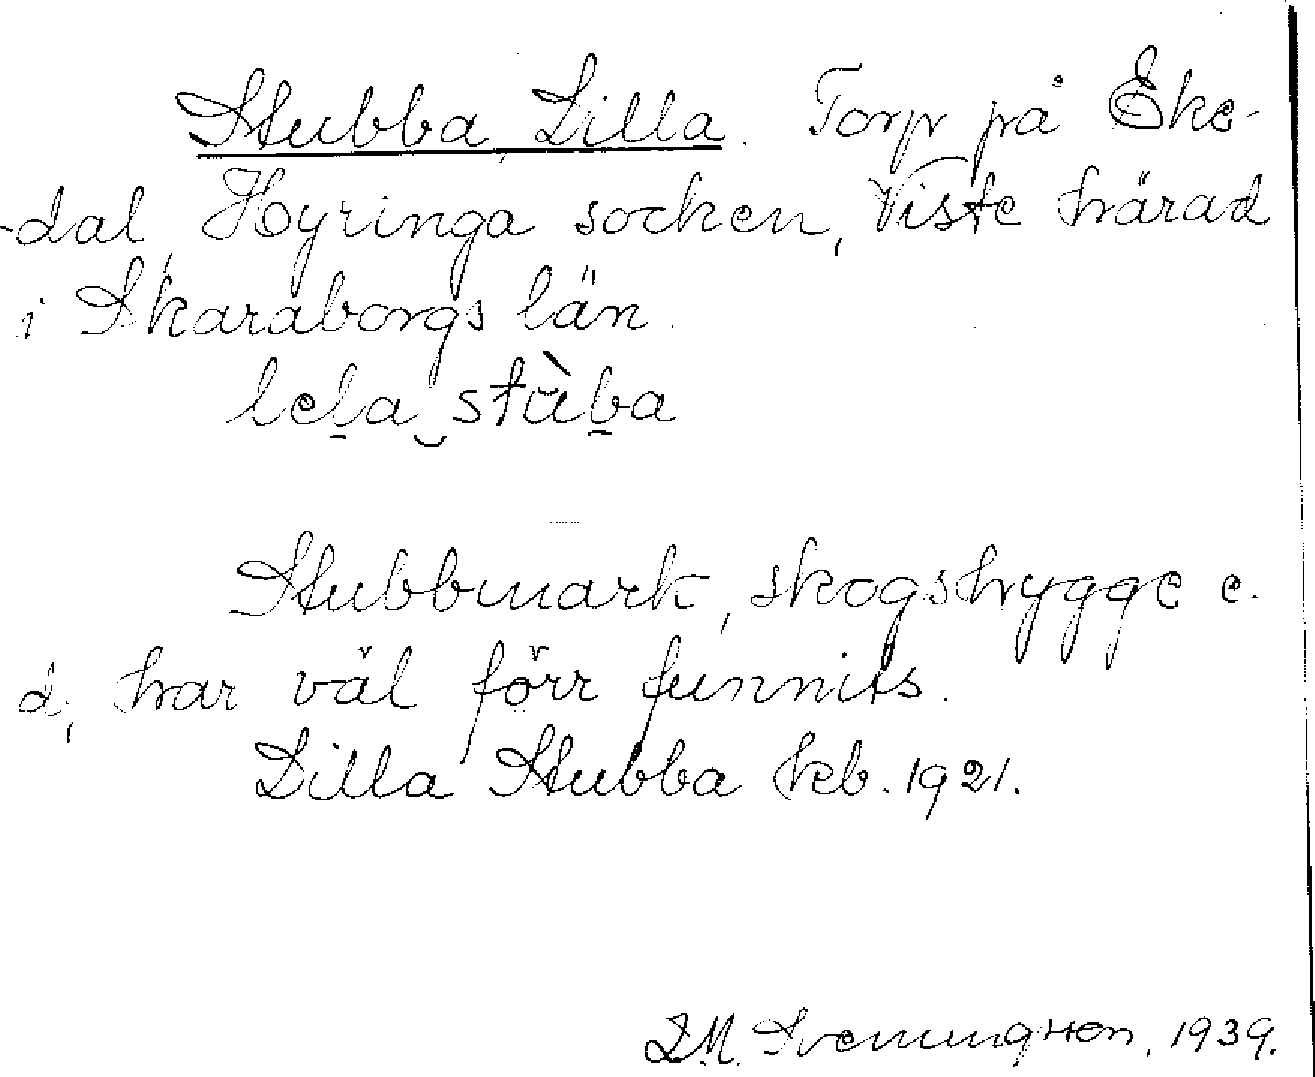 Stubba, Lilla. Torp på Eke-
-dal, Hyringa socken, Viste härad
i Skaraborgs län.
lela stùba
Stubbmark, skogshygge e.
d, har väl förr funnits.
Lilla Stubba kb. 1921.
D.M. Svenningsson, 1939.